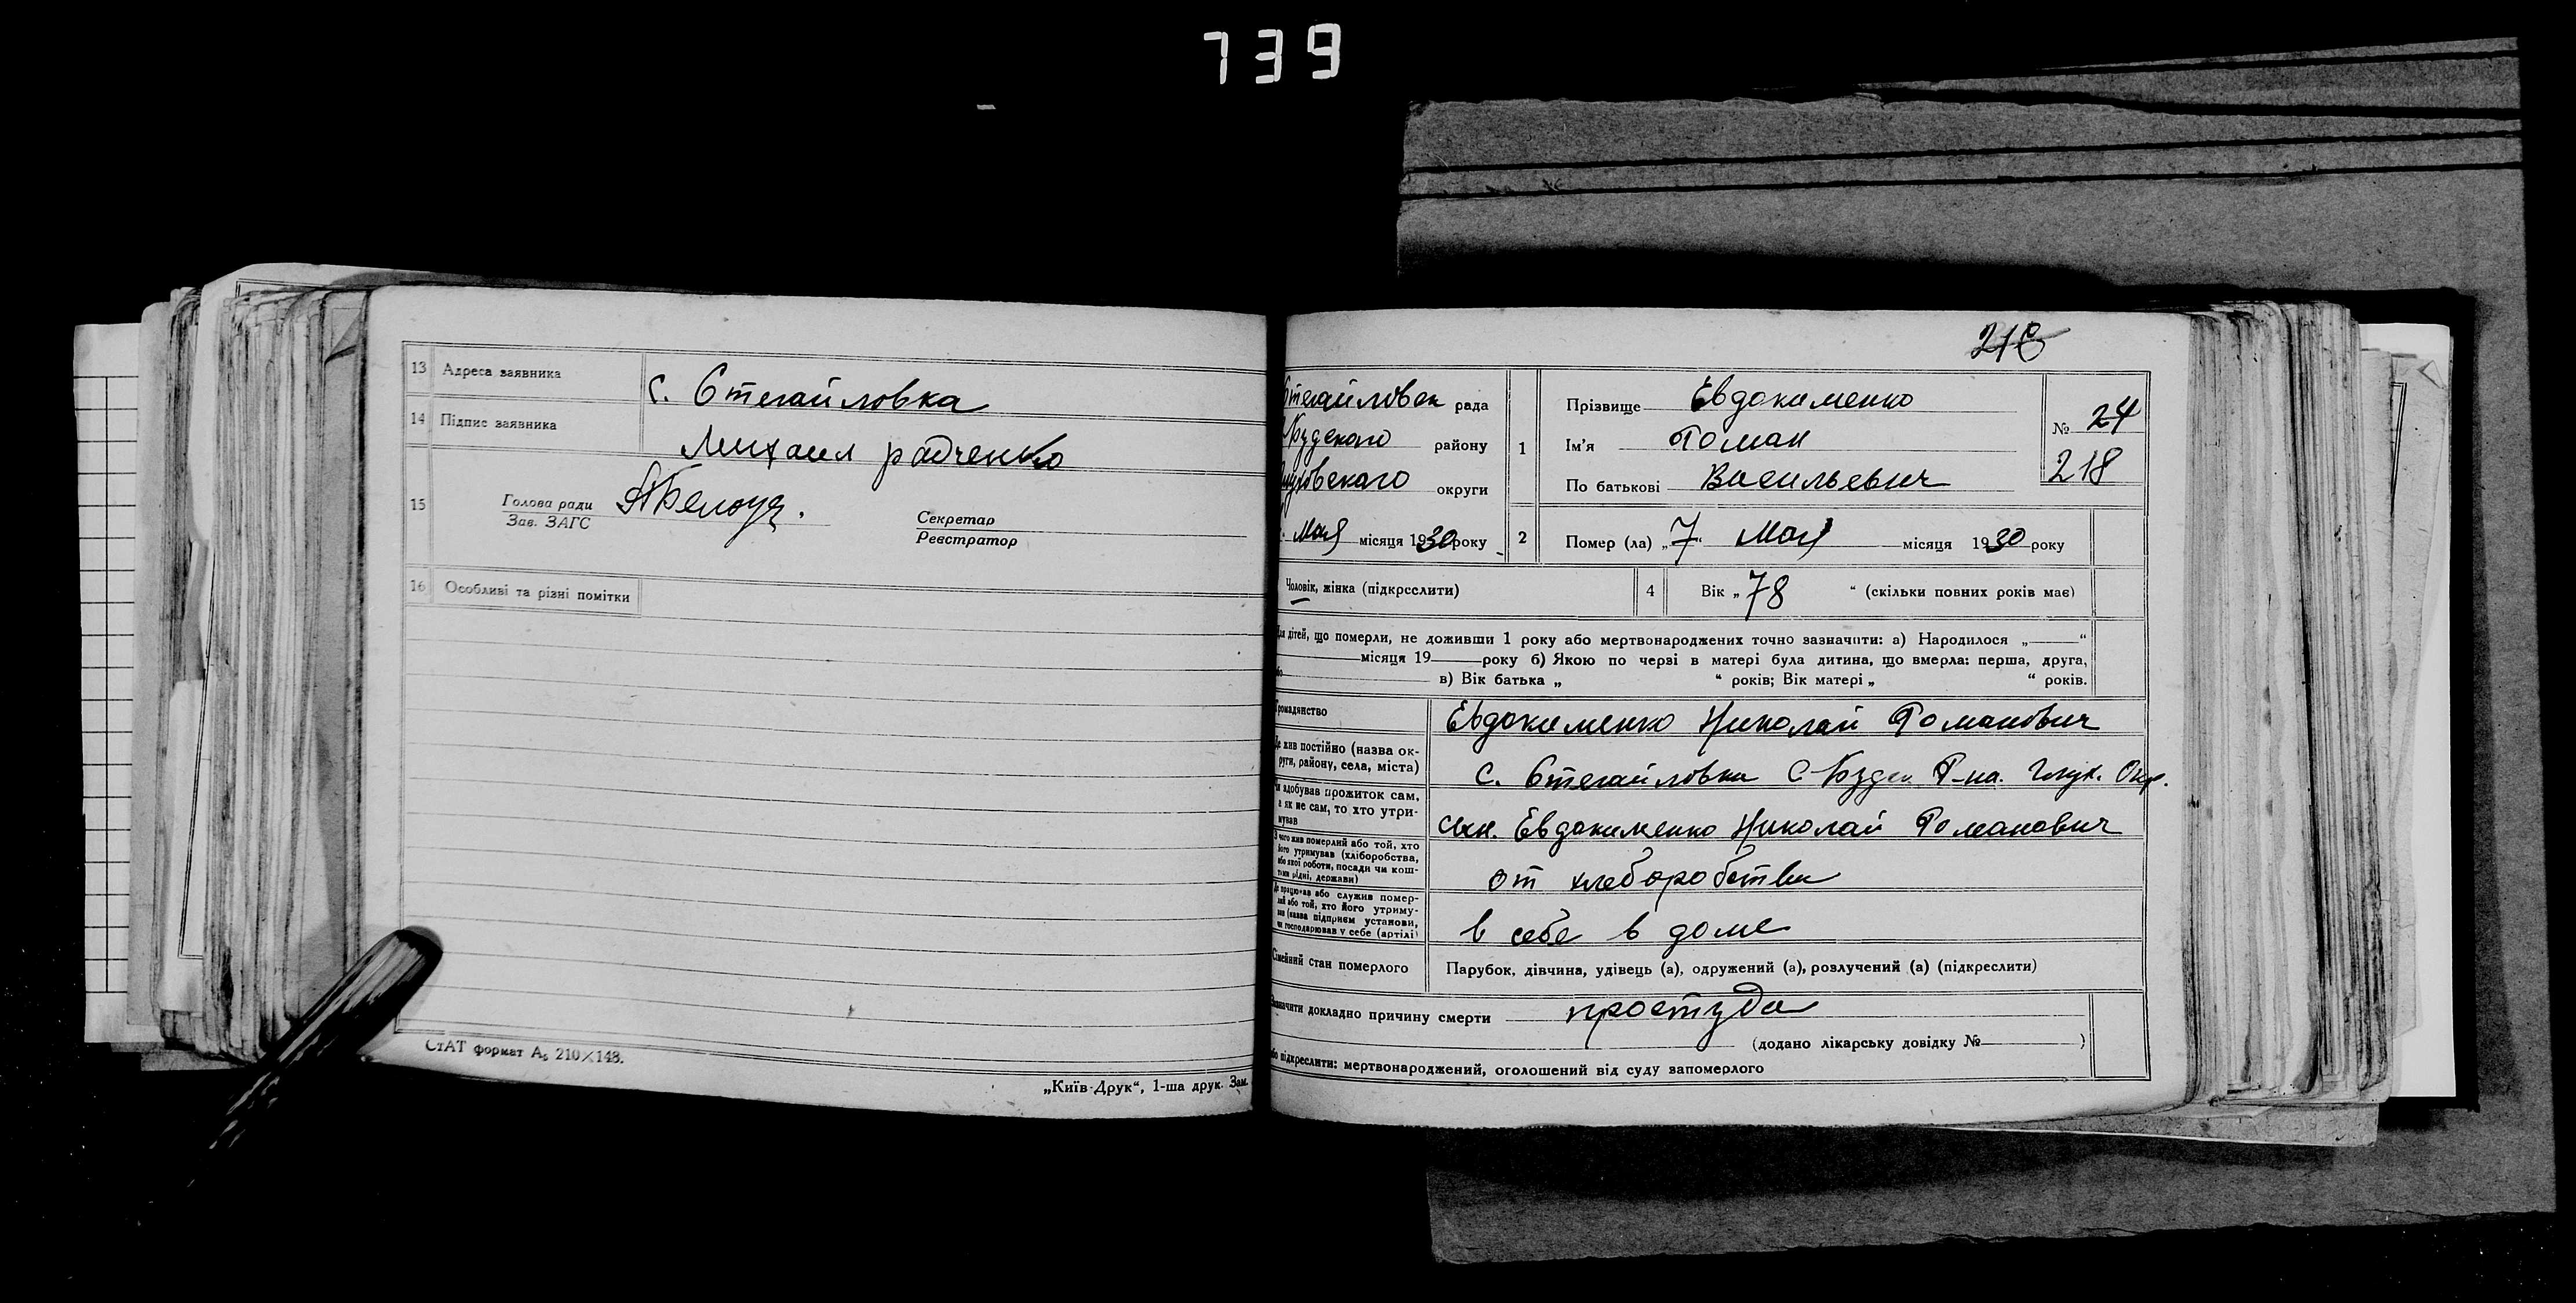 739
13 Адреса заявника
с. Стегайловка
14 Підпис заявника
Михаил радченко
15 Голова ради
Зав. ЗАГС
Секретар
Реєстратор
16 Особливі та різні помітки
СтАТ формат А₅ 210×148.
„Київ-Друк“, 1-ша друк. Зам.
218
рада
району
округи
Мая місяця 1930 року
1 Прізвище Евдокименко
Ім'я Роман
По батькові Васильевич
№ 24
218
2 Помер (ла) „7“ Мая місяця 1930 року
Чоловік, жінка (підкреслити)
4 Вік „78“ (скільки повних років має)
дітей, що померли, не доживши 1 року або мертвонароджених точно зазначити: а) Народилося „ “
місяця 19 року б) Якою по черзі в матері була дитина, що вмерла: перша, друга,
в) Вік батька „ “ років; Вік матері „ “ років.
Евдокименко Николай Романович
жив постійно (назва ок-
руги, району, села, міста)
с. Стегайловка Р-на. Глух. Окр.
здобував прожиток сам,
а як не сам, то хто утри-
мував
сын. Евдокименко Николай Романович
чого жив померлий або той, хто
його утримував (хліборобства,
або якої роботи, посади чи кош-
тами рідні, держави)
от хлеборобства
працював або служив помер-
лий або той, хто його утриму-
вав (назва підприєм установи,
чи господарював у себе (артілі)
в себе в доме
Сімейний стан померлого
Парубок, дівчина, удівець (а), одружений (а), розлучений (а) (підкреслити)
Зазначити докладно причину смерти простуда
(додано лікарську довідку № )
підкреслити: мертвонароджений, оголошений від суду запомерлого